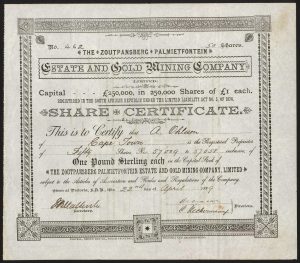 No. 462 50 Shares.
THE ZOUTPANSBERG PALMIETFONTEIN
ESTATE AND GOLD MINING COMPANY
LIMITED.
Capital £250,000, in 250,000 Shares of £1 each.
REGISTERED IN THE SOUTH AFRICAN REPUBLIC UNDER THE LIMITED LIABILITY ACT No. 5, OF 1874.
SHARE CERTIFICATE.
This is to Certify that A.
of Cape Town is the Registered Proprietor
of Fifty Shares No. to inclusive, of
One Pound Sterling each in the Capital Stock of
THE ZOUTPANSBERG PALMIETFONTEIN ESTATE AND GOLD MINING COMPANY, LIMITED
subject to the Articles of Association and Rules and Regulations of the Company.
Given at Pretoria, S.A.R., this 22nd day of April
Secretary.
Directors.